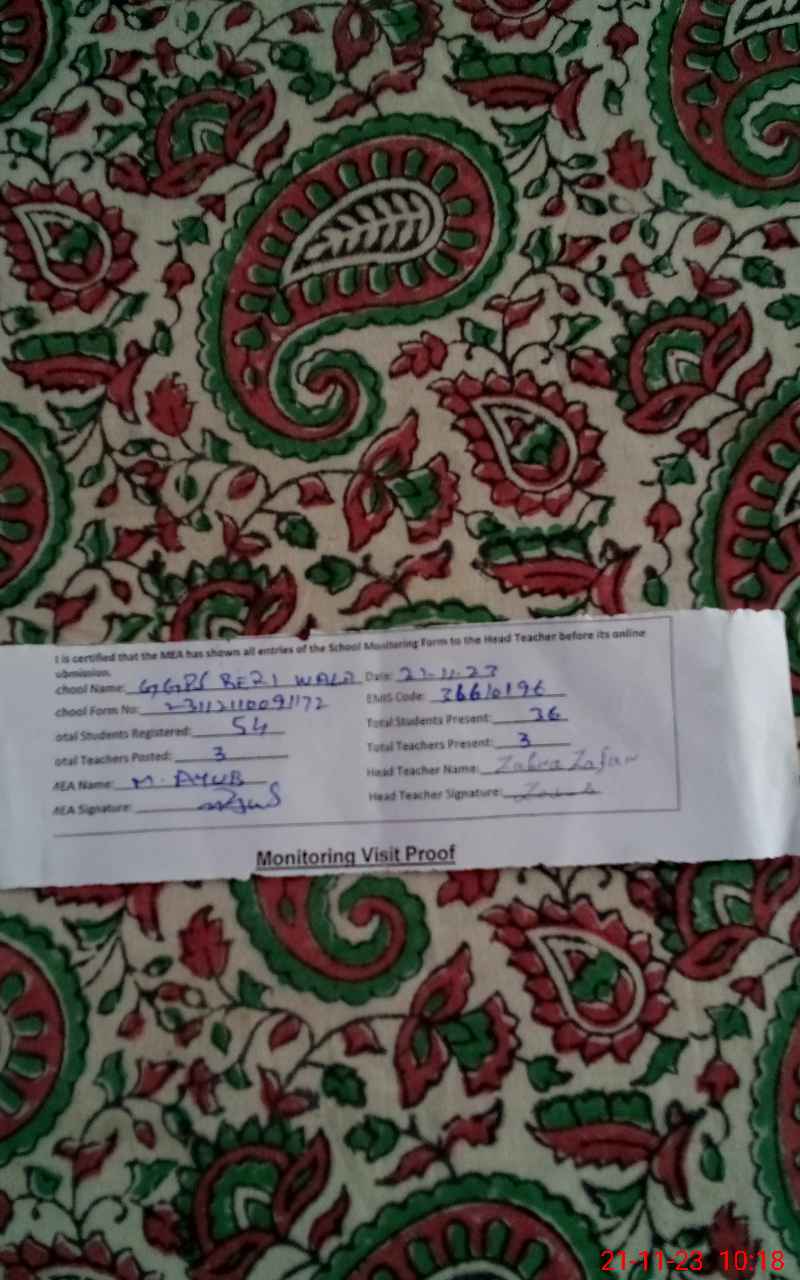 t is certified that the MEA has shown all entries of the School Monitoring Form to the Head Teacher before its online
ubmission.
chool Name: GGPS BERI WALA Date: 21-11-23
chool Form No: EMIS Code: 36610196
otal Students Registered: 54 Total Students Present: 36
otal Teachers Posted: 3 Total Teachers Present: 3
MEA Name: M. AYUB Head Teacher Name: Zahra Zafar
MEA Signature: Head Teacher Signature:
Monitoring Visit Proof
21-11-23 10:18